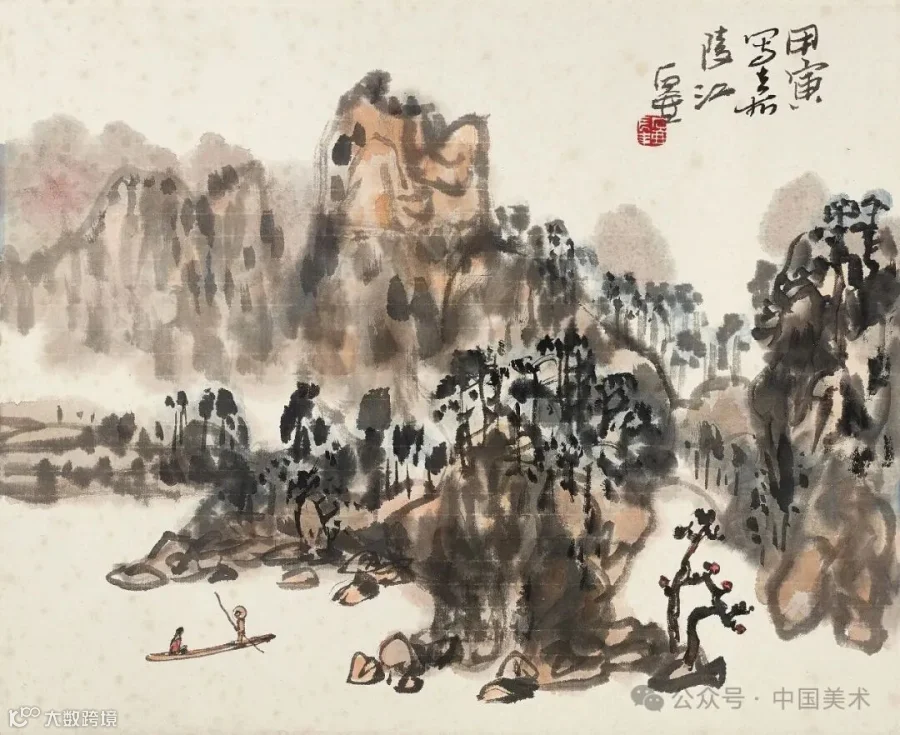 甲寅
写嘉
陵江
石壶
公众号 · 中国美术
大数跨境